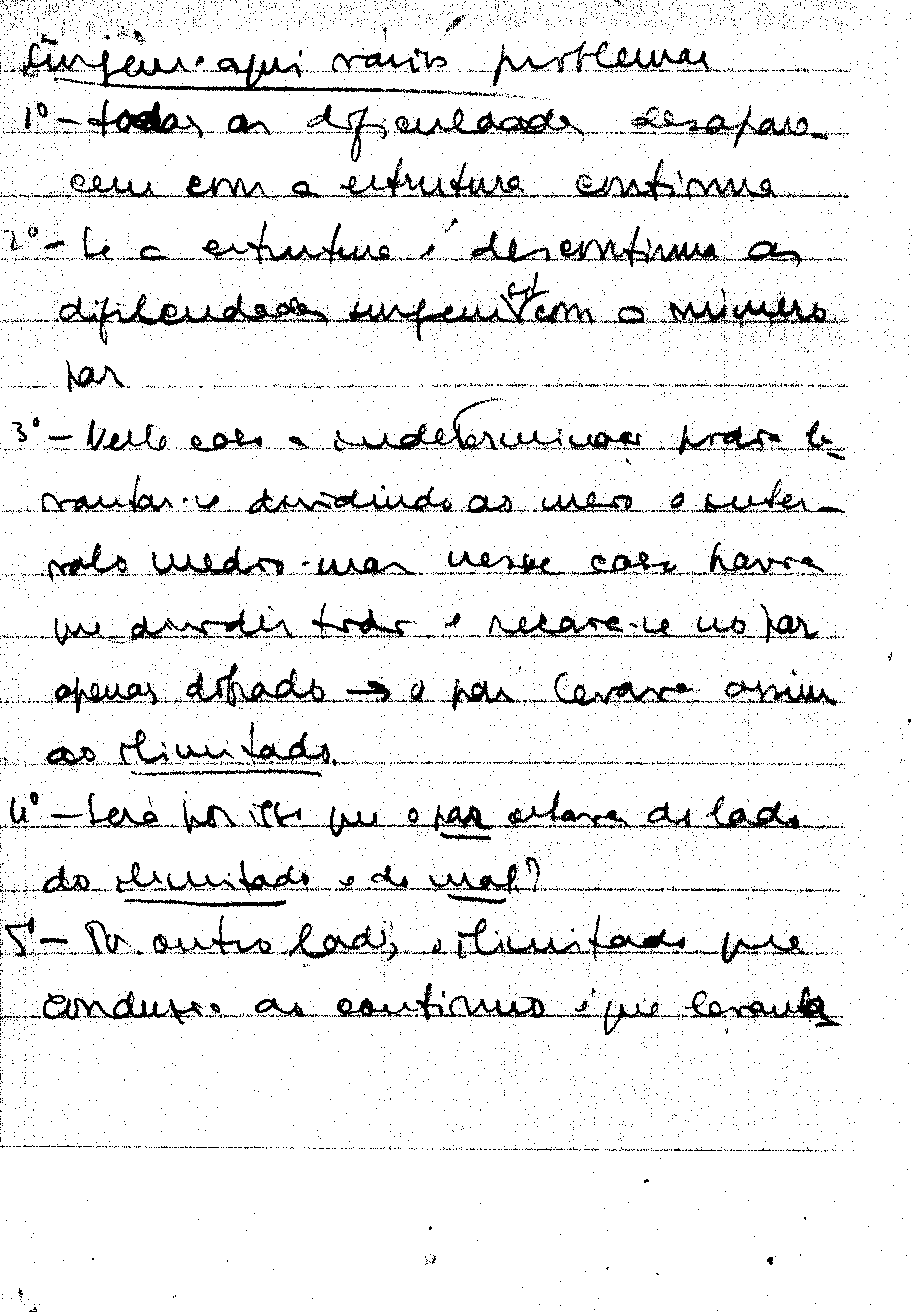 Surgem aqui vários problemas
1º - todas as dificuldades desapare-
cem com a estrutura contínua
2º - Se a estrutura é descontínua as
dificuldades surgem só com o número
par
3º - Neste caso a indeterminação podia le-
vantar-se dividindo ao meio o inter-
valo médio - mas nesse caso havia
que dividir todos e recaía-se no par
apenas dobrado → o par levava assim
ao ilimitado.
4º - Será por isso que o par estava do lado
do ilimitado e do mal?
5º - Por outro lado, o ilimitado que
conduzia ao contínuo é que levanta